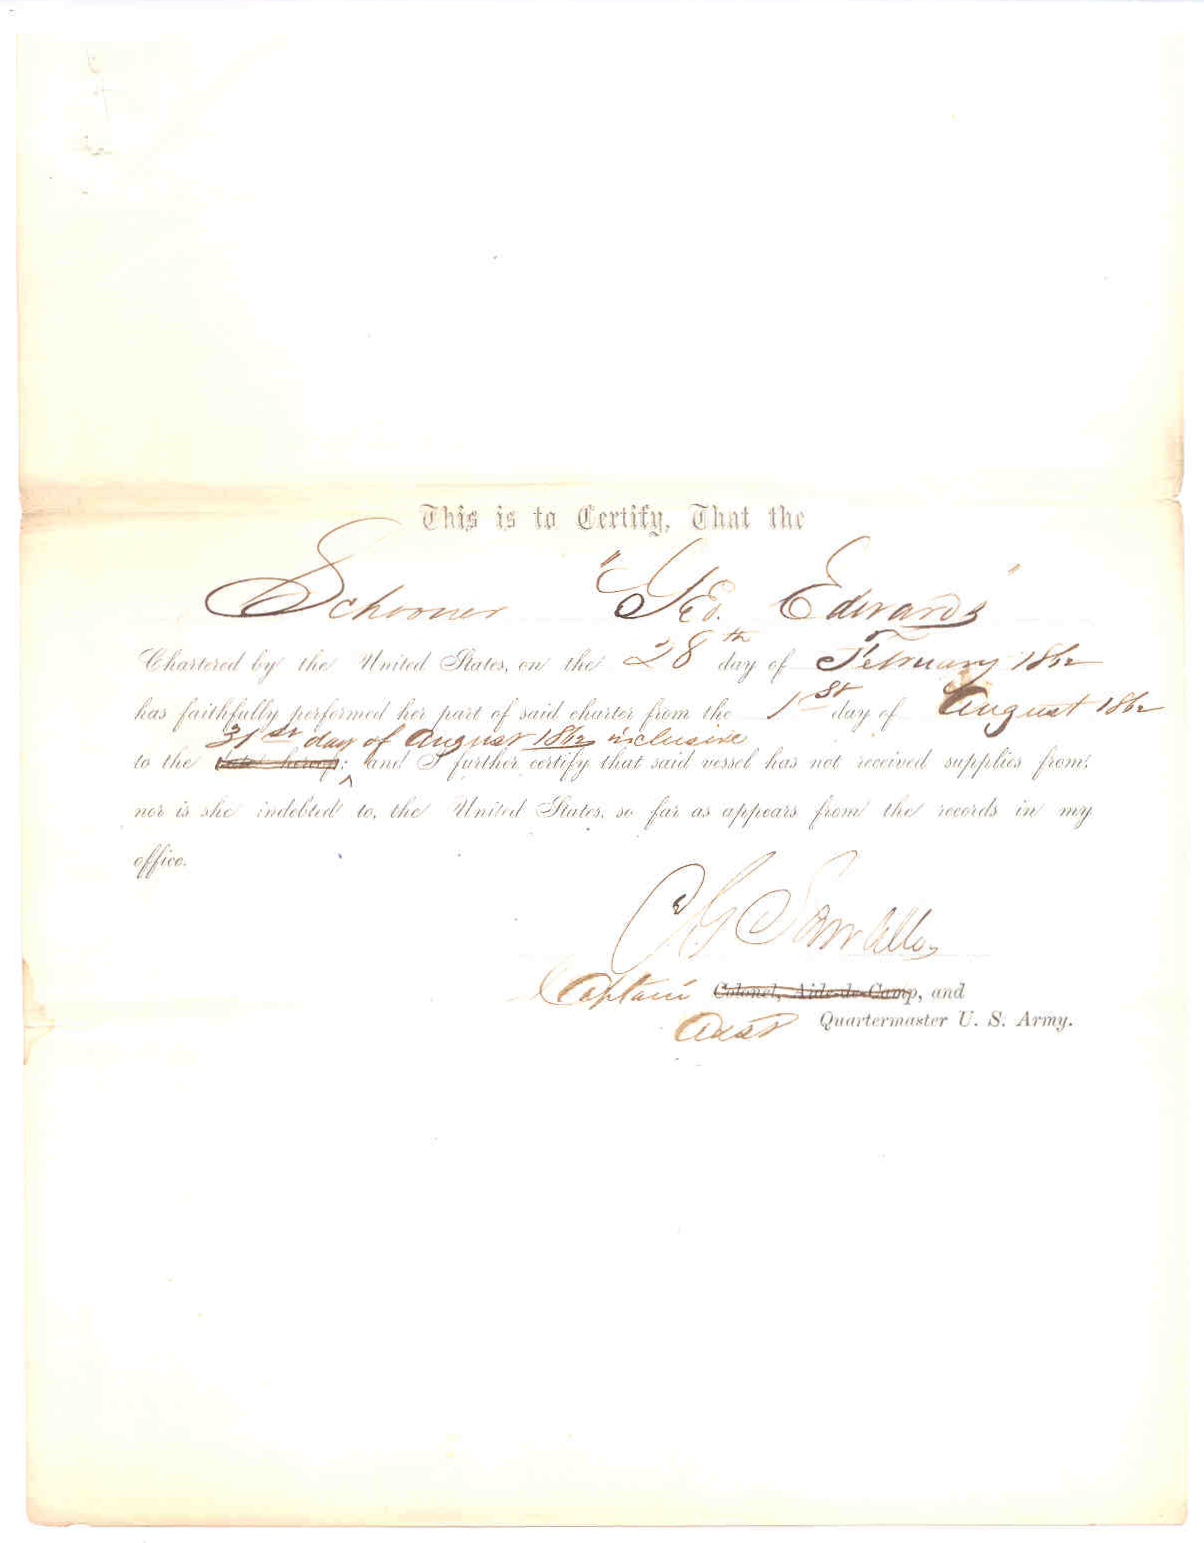 This is to Certify, That the
Schooner "Geo. Edwards"
Chartered by the United States, on the 28th day of February 1862
has faithfully performed her part of said charter from the 1st day of August 1862
31st day of August 1862 inclusive
to the date hereof; and I further certify that said vessel has not received supplies from,
nor is she indebted to, the United States, so far as appears from the records in my
office.
C G
Captain Colonel, Aide-de-Camp, and
Asst Quartermaster U. S. Army.